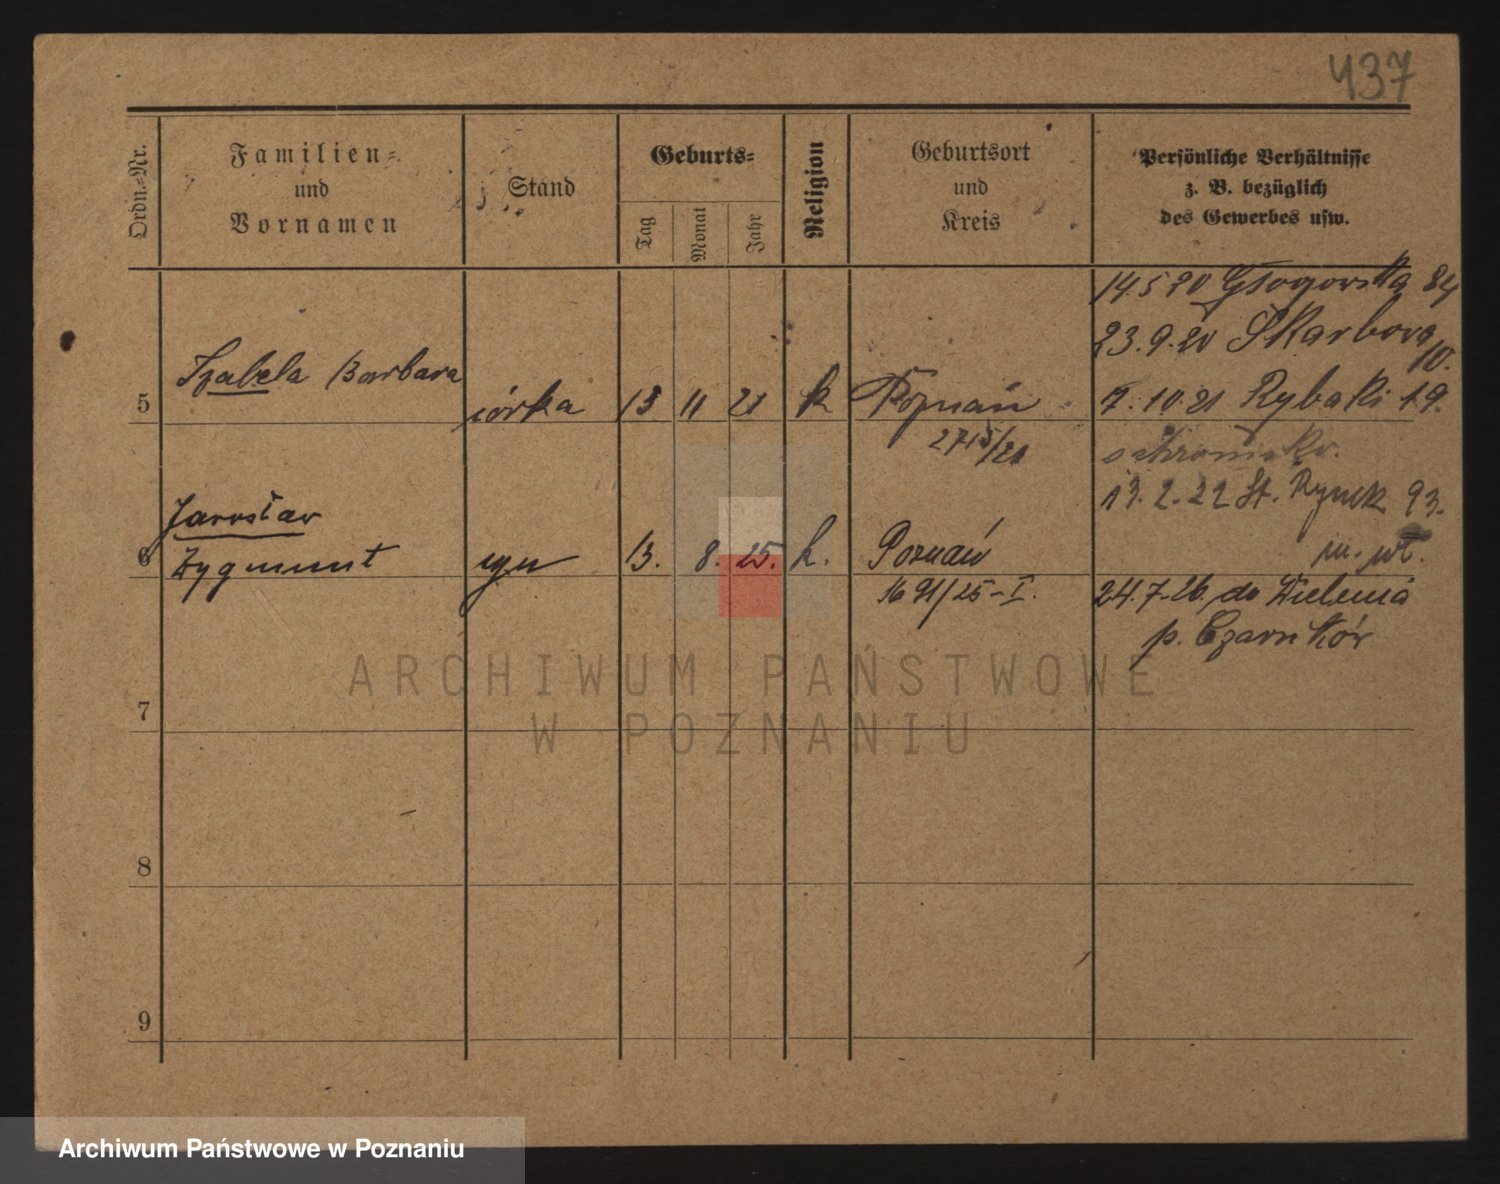 437
Ordn.=Nr.
Familien=
und
Vornamen
Stand
Geburts=
Tag
Monat
Jahr
Religion
Geburtsort
und
Kreis
Persönliche Verhältnisse
z. B. bezüglich
des Gewerbes usw.
14.5 20 Głogowska 84
23.9.20 Skarbowa
10.
5 Izabela Barbara córka 13 11 21 k Poznań 7.10.21 Rybaki 19.
2715/21
13.2.22 St. Rynek 93.
Jarosław
6 Zygmunt syn 13. 8. 25. k. Poznań m. wł.
1691/25-I. 24.7.26 do Wielenia
p. Czarnków
7
8
9
ARCHIWUM PAŃSTWOWE
W POZNANIU
Archiwum Państwowe w Poznaniu